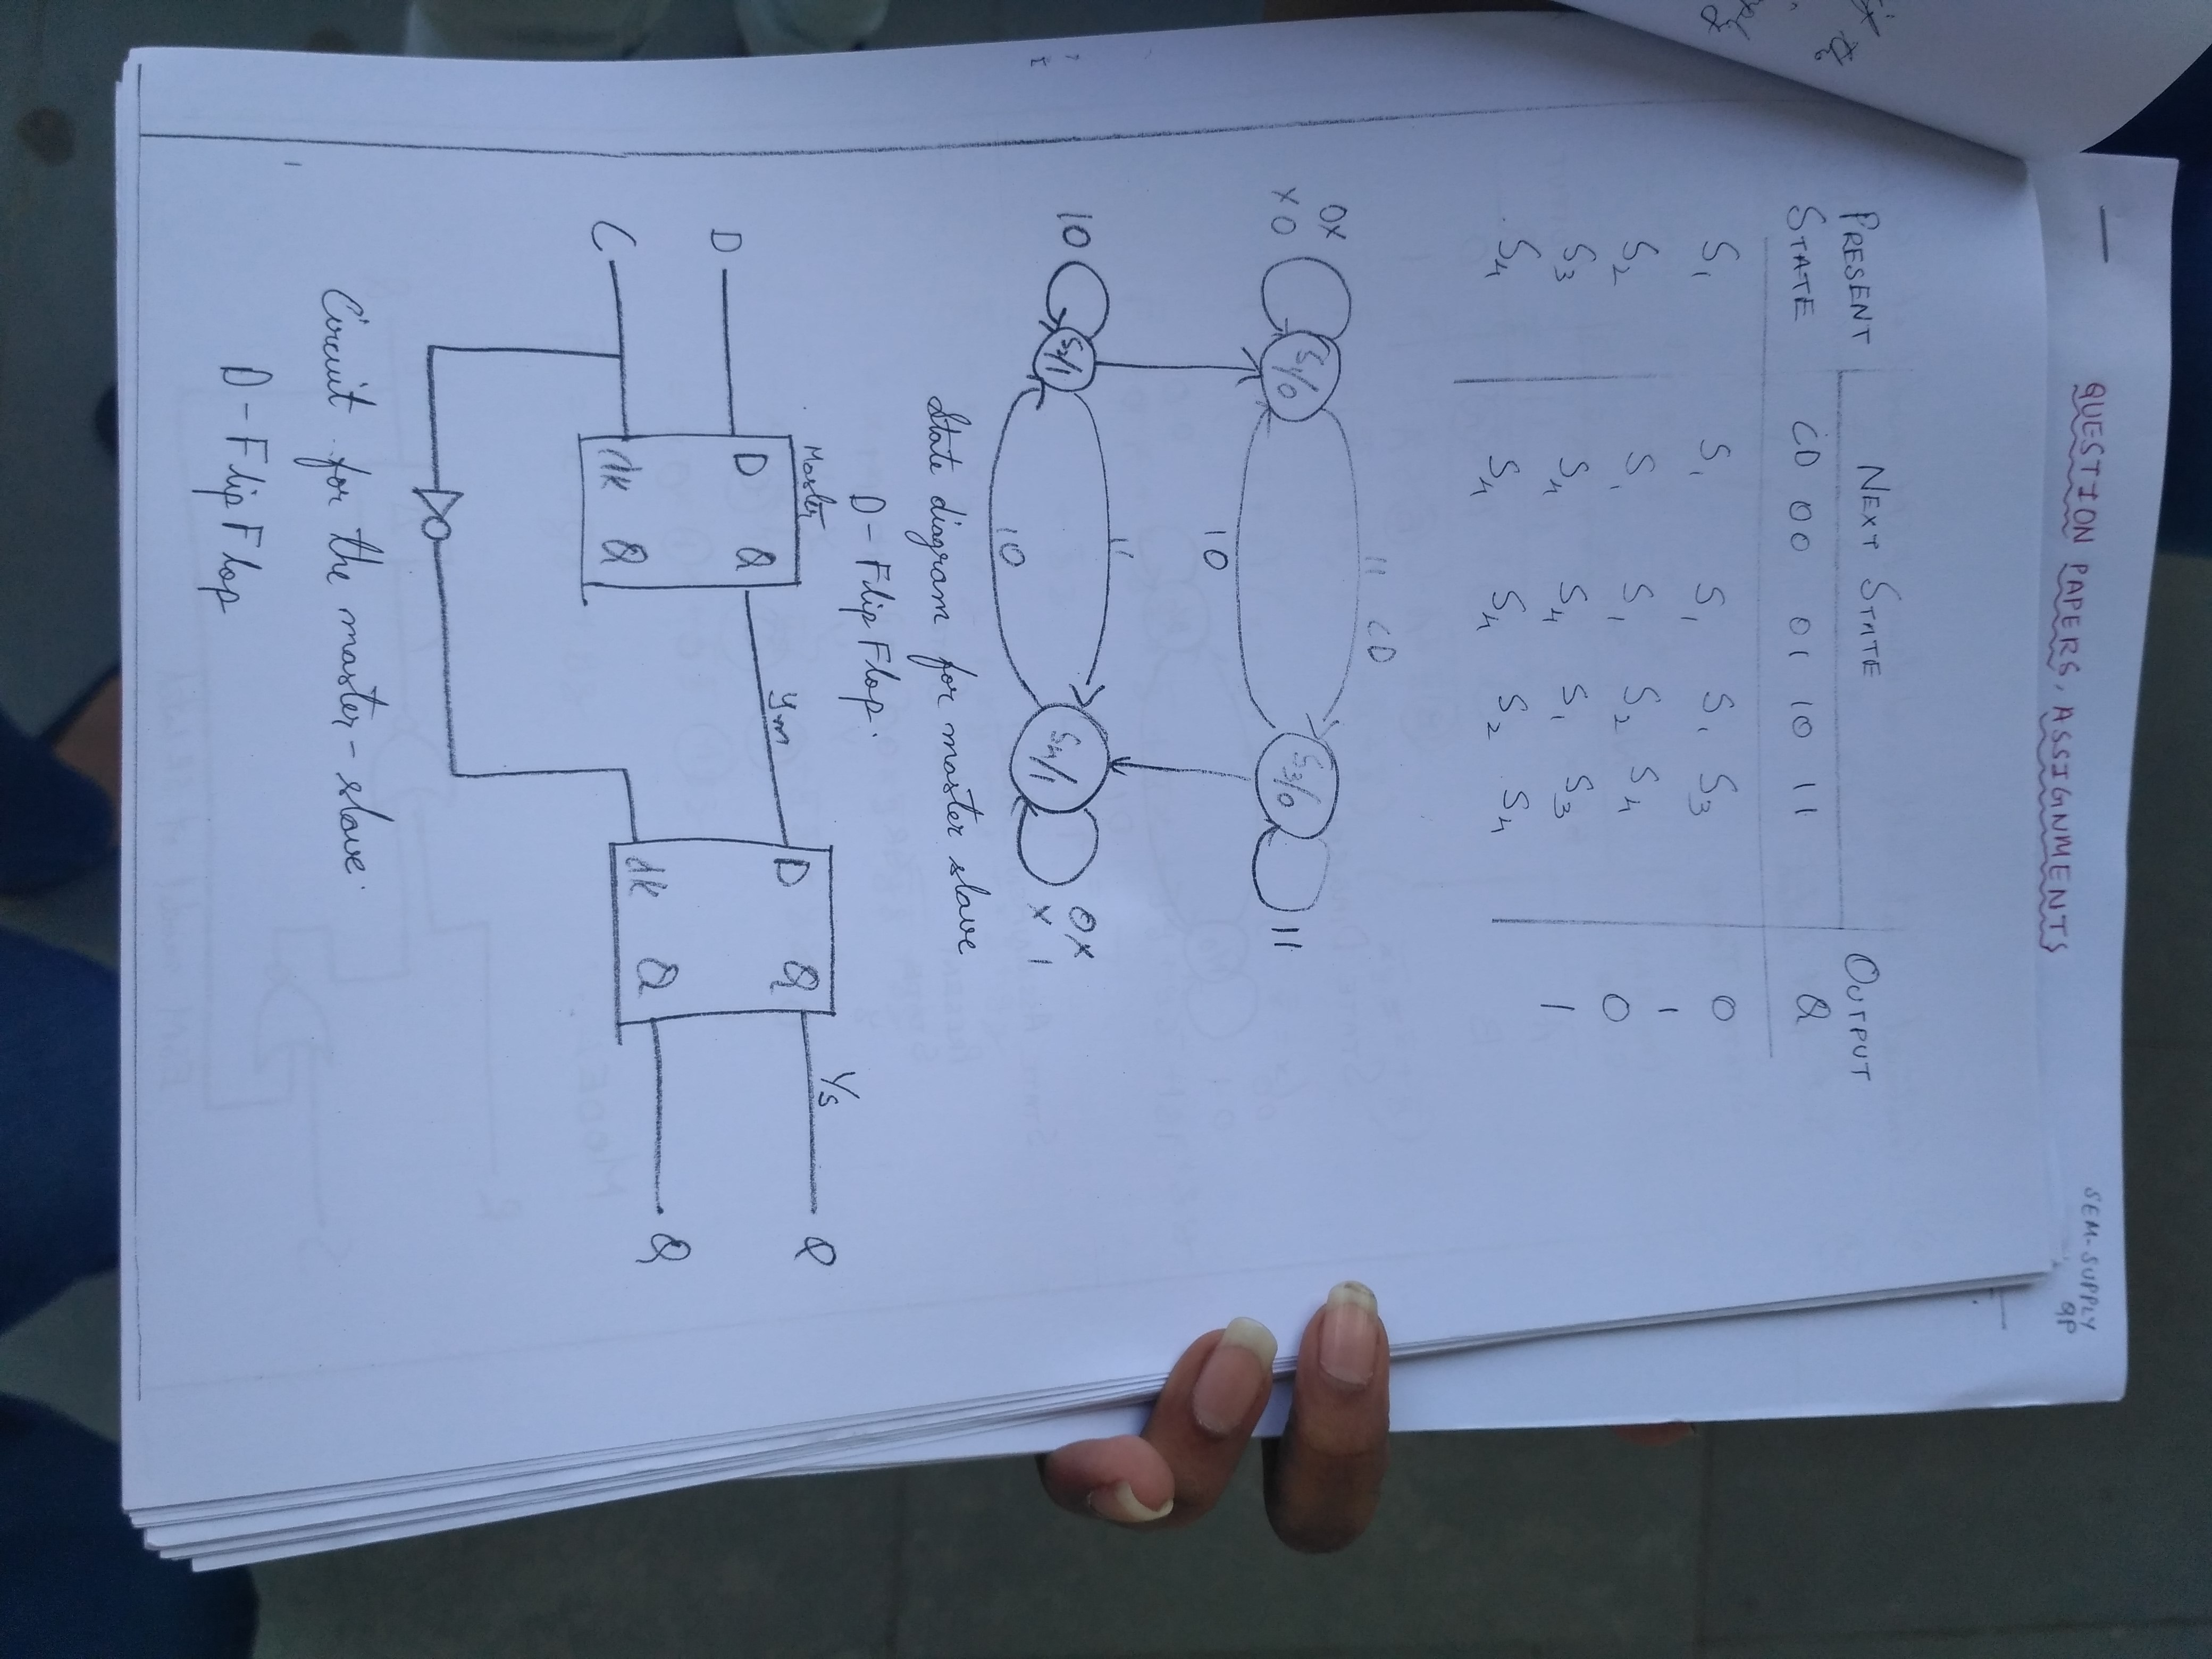 QUESTION PAPERS, ASSIGNMENTS
SEM-SUPPLY
QP
PRESENT STATE NEXT STATE OUTPUT
CD 00 01 10 11 Q
S1 S1 S1 S1 S3 0
S2 S1 S1 S2 S4 1
S3 S4 S4 S1 S3 0
S4 S4 S4 S2 S4 1
0x
x0
11 CD
S1/0
S3/0
11
10
10
S2/1
11
S4/1
0x
x1
10
State diagram for master slave
D-Flip Flop.
Master
D D Q ym D Q Ys Q
C clk Q clk Q Q
Circuit for the master-slave.
D-Flip Flop